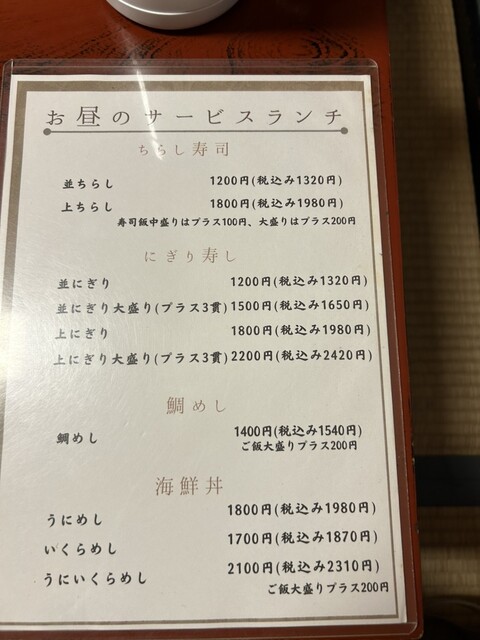 お昼のサービスランチ
ちらし寿司
並ちらし 1200円(税込み1320円)
上ちらし 1800円(税込み1980円)
寿司飯中盛りはプラス100円、大盛りはプラス200円
にぎり寿し
並にぎり 1200円(税込み1320円)
並にぎり大盛り(プラス3貫) 1500円(税込み1650円)
上にぎり 1800円(税込み1980円)
上にぎり大盛り(プラス3貫) 2200円(税込み2420円)
鯛めし
鯛めし 1400円(税込み1540円)
ご飯大盛りプラス200円
海鮮丼
うにめし 1800円(税込み1980円)
いくらめし 1700円(税込み1870円)
うにいくらめし 2100円(税込み2310円)
ご飯大盛りプラス200円